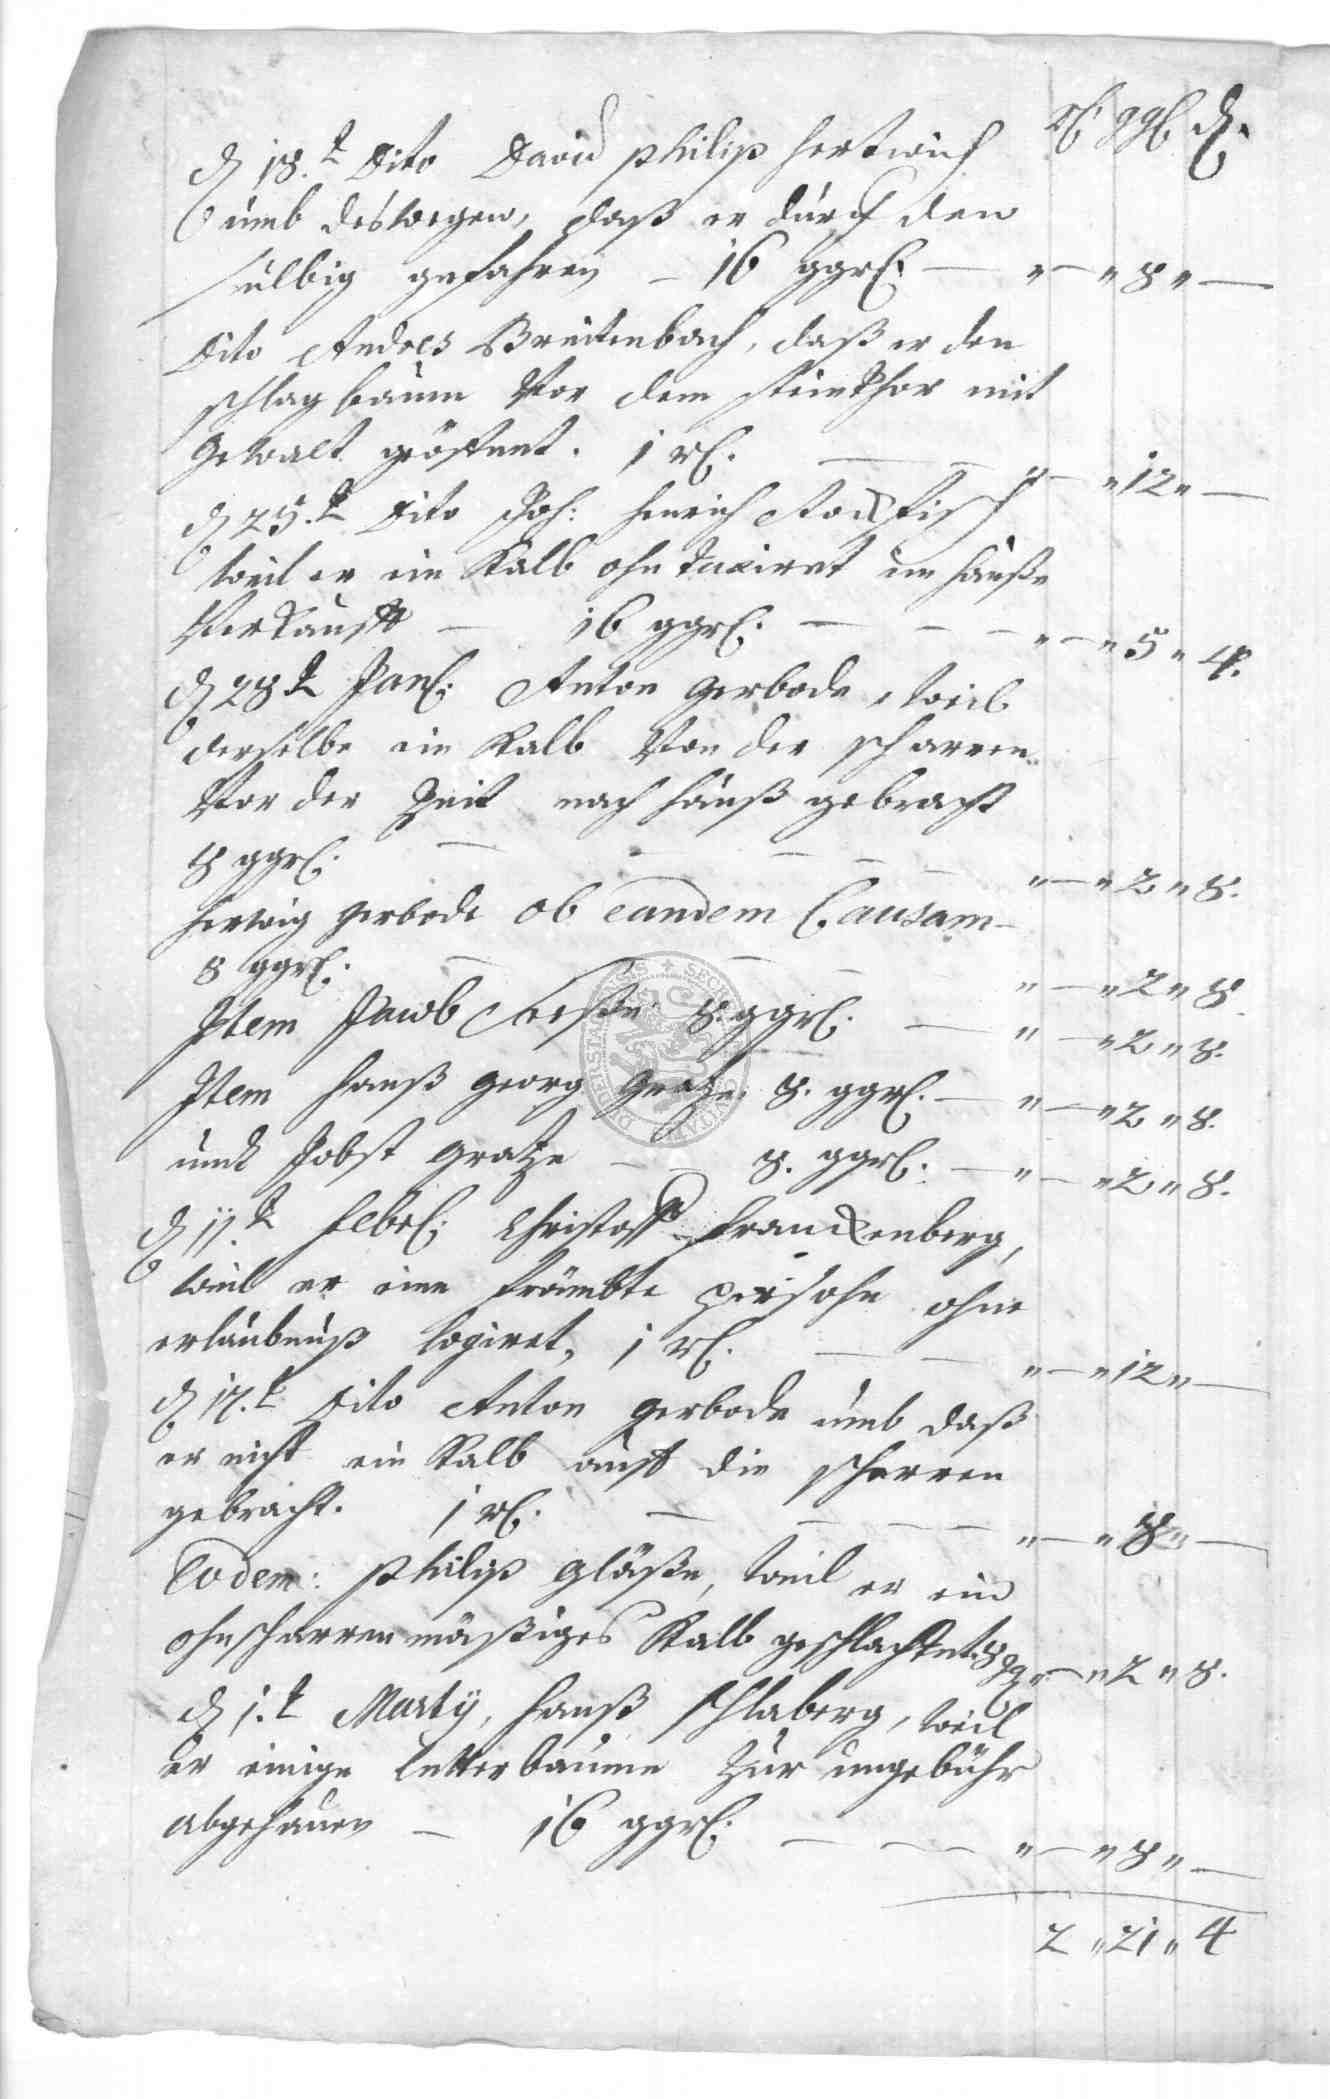 rl: ggl d.
d 18.t Dito David Philip Hertwich
umb deswegen, daß er durch den
sülbig gefahren – 16 ggrl. — " — " 8 " —
Dito Andres Breitenbach, daß er den
schlagbaum Vor dem steinthor mit
gewalt geöffnet. 1 rl. — " — " 12 " —
d 25.t Dito Joh: Henrich Stockfisch
weil er ein Kalb ohn taxiret im hauße
Verkaufft – 16 ggrl. — " — " 5 " 4.
d 28t Janl: Anton Gerbode, weil
derselbe ein Kalb Von der scharren
Vor der Zeit nach hauß gebracht
8 ggrl. — " — " 2 " 8.
Herwig Gerbode ob eandem Causam –
8 ggrl. — " — " 2 " 8
Item Jacob 8. ggrl. — " — " 2 " 8.
Item Hanß Georg Gratze 8. ggrl. — " — " 2 " 8.
undt Jobst Gratze – 8. ggrl. — " — " 2 " 8.
d 11.t Febrl: Christoff Franckenberg,
weil er eine frömbte persohn ohne
erlaubnuß logiret, 1 rl. — " — " 12 " —
d 17.t Dito Anton Gerbode umb daß
er nicht ein Kalb auff die scharren
gebracht. 1 rl. — " — " 8 " —
Eodem: Philip Gläße, weil er ein
ohnscharrenmäßiges Kalb geschlachtet. 8 gg " — " 2 " 8.
d 1.t Marty, Hanß Schlaberg, weil
er einige letterbäume zur ungebühr
abgehauen – 16 ggrl. — " — " 8 " —
2 " 21 " 4